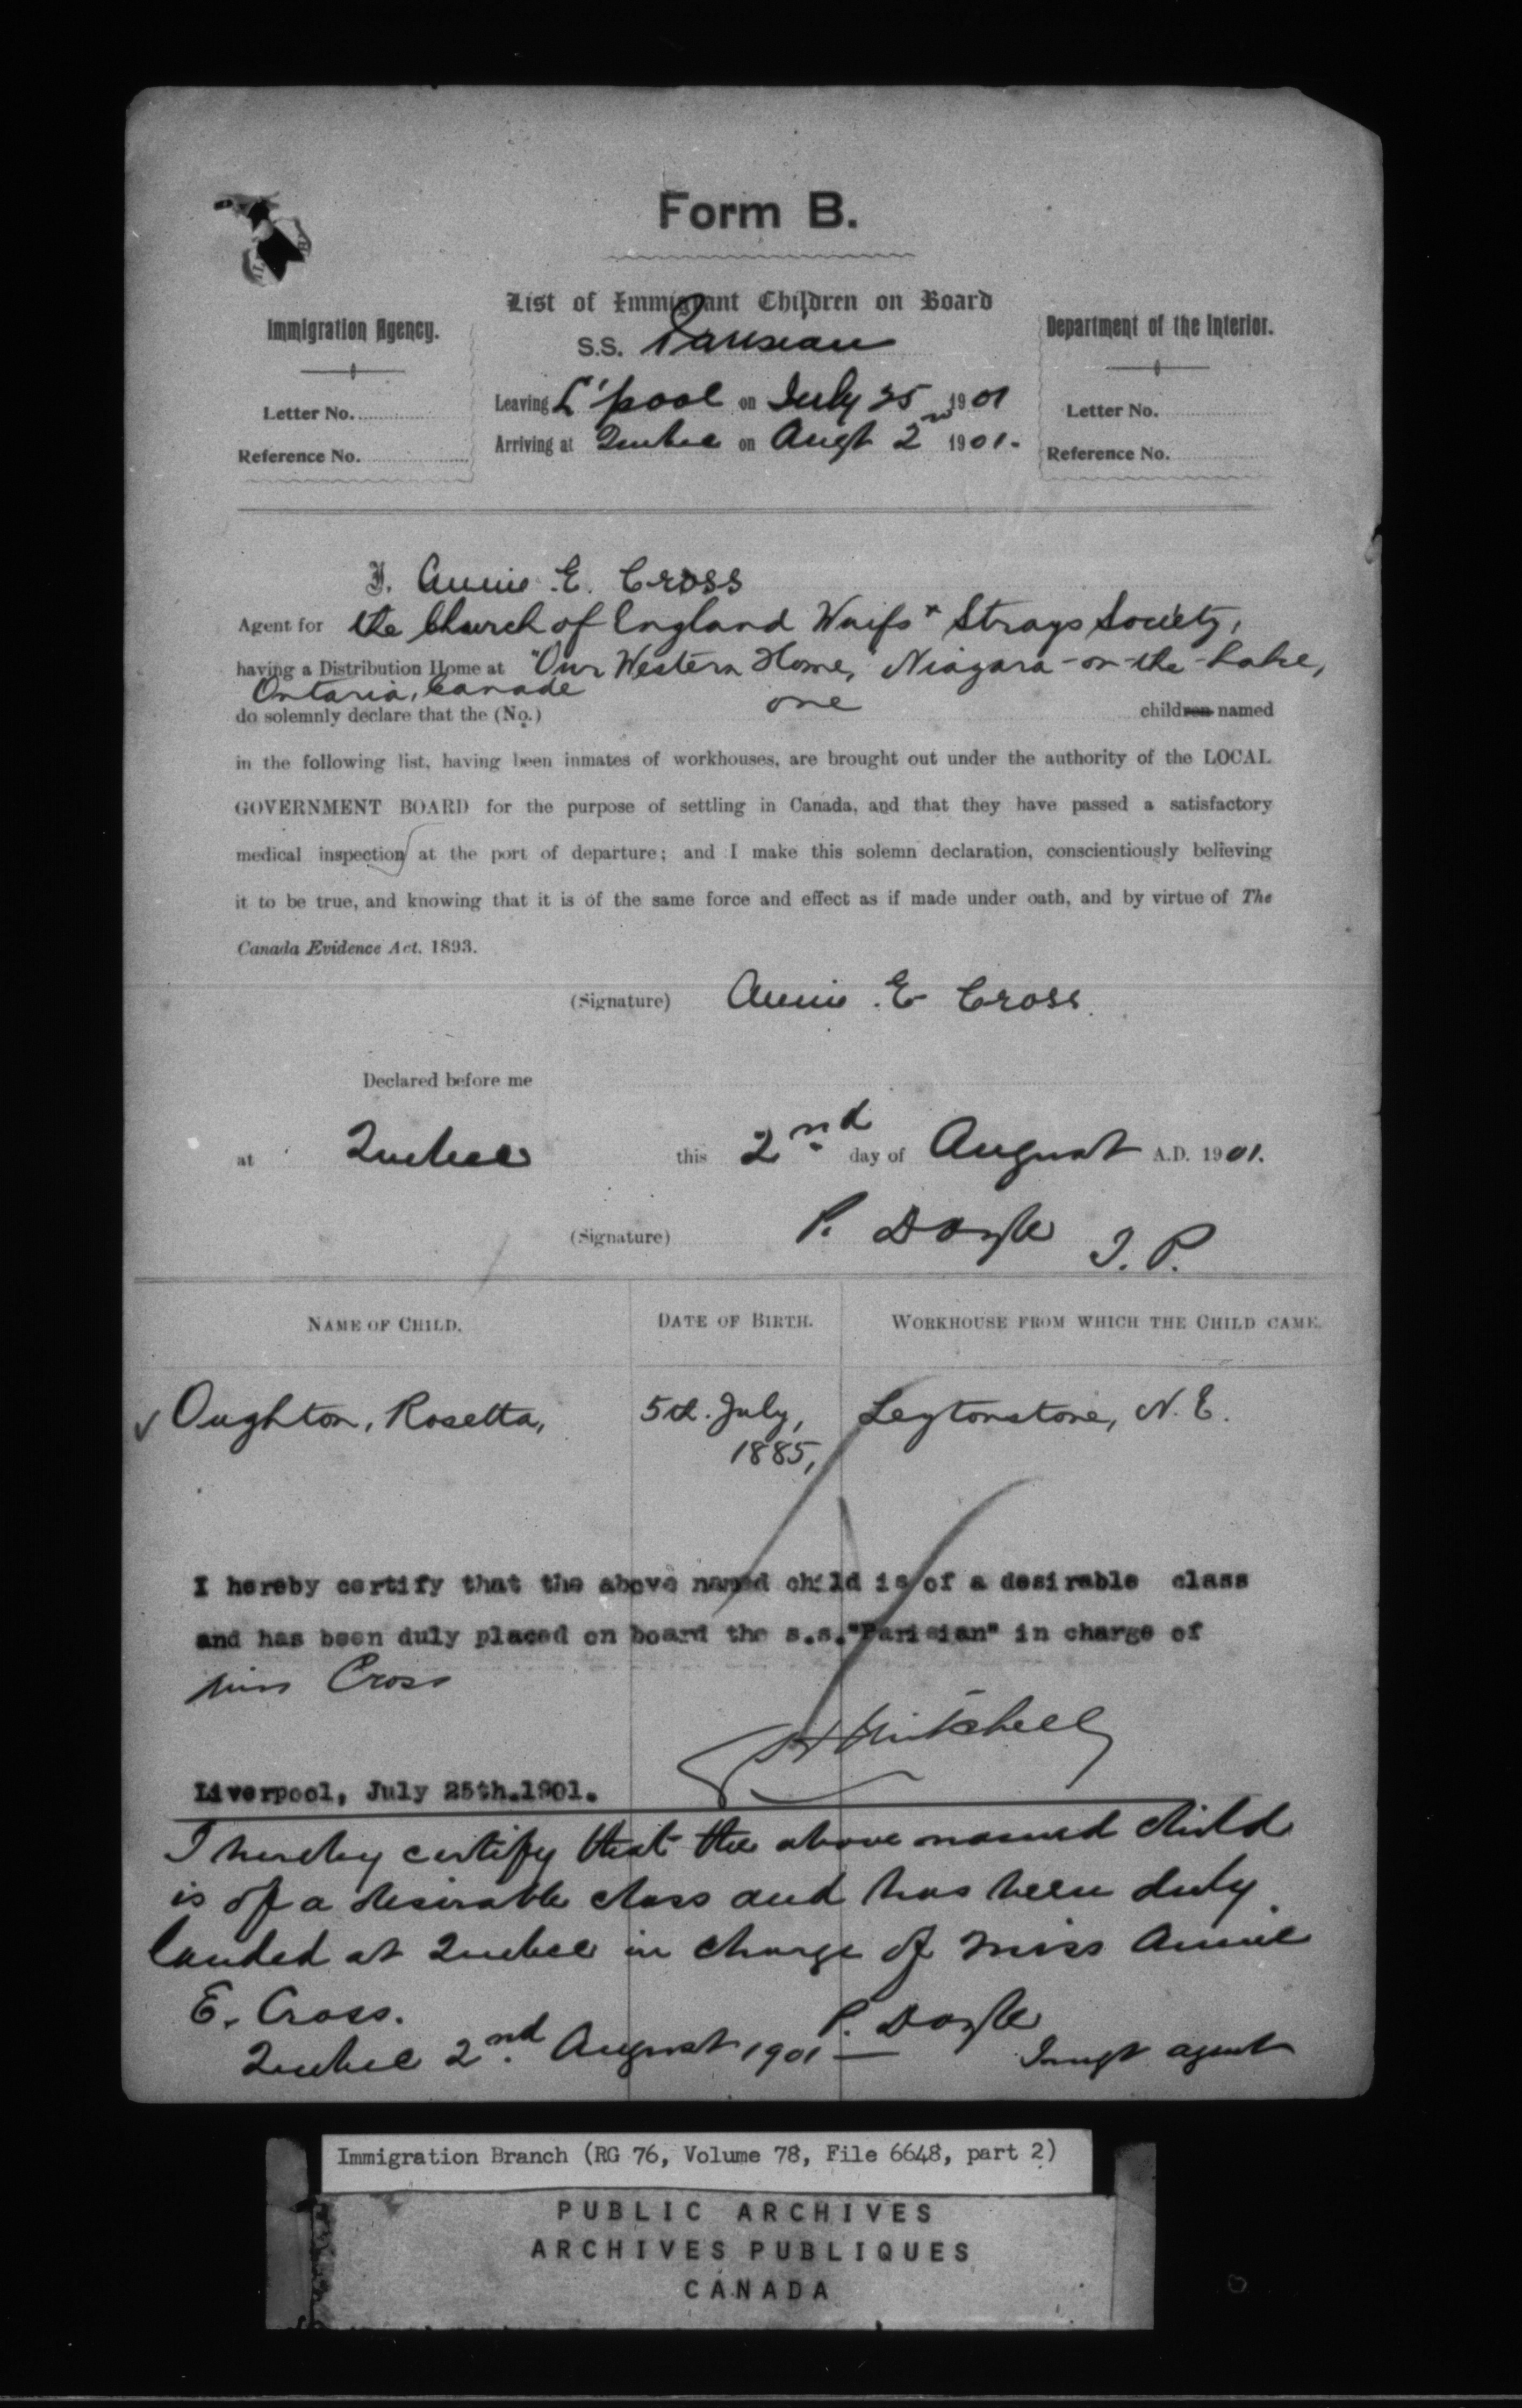 Form B.
List of Immigrant Children on Board
S.S. Parisian
Leaving L'pool on July 25 1901
Arriving at Quebec on Augt 2nd 1901.
Immigration Agency.
Letter No.
Reference No.
Department of the Interior.
Letter No.
Reference No.
I, Annie E. Cross
Agent for the Church of England Waifs & Strays Society,
having a Distribution Home at "Our Western Home," Niagara-on-the-Lake,
Ontario, Canada
do solemnly declare that the (No.) one children named
in the following list, having been inmates of workhouses, are brought out under the authority of the LOCAL
GOVERNMENT BOARD for the purpose of settling in Canada, and that they have passed a satisfactory
medical inspection at the port of departure; and I make this solemn declaration, conscientiously believing
it to be true, and knowing that it is of the same force and effect as if made under oath, and by virtue of The
Canada Evidence Act, 1893.
(Signature) Annie E Cross.
Declared before me
at Quebec this 2nd day of August A.D. 1901.
(Signature) P. Doyle J.P.
NAME OF CHILD. DATE OF BIRTH. WORKHOUSE FROM WHICH THE CHILD CAME.
Oughton, Rosetta, 5th. July, Leytonstone, N.E.
1885,
I hereby certify that the above named child is of a desirable class
and has been duly placed on board the s.s."Parisian" in charge of
Miss Cross
Mitchell
Liverpool, July 25th.1901.
I hereby certify that the above named child
is of a desirable class and has been duly
landed at Quebec in charge of Miss Annie
E. Cross.
P. Doyle
Quebec 2nd August 1901 — Imgt agent
Immigration Branch (RG 76, Volume 78, File 6648, part 2)
PUBLIC ARCHIVES
ARCHIVES PUBLIQUES
CANADA